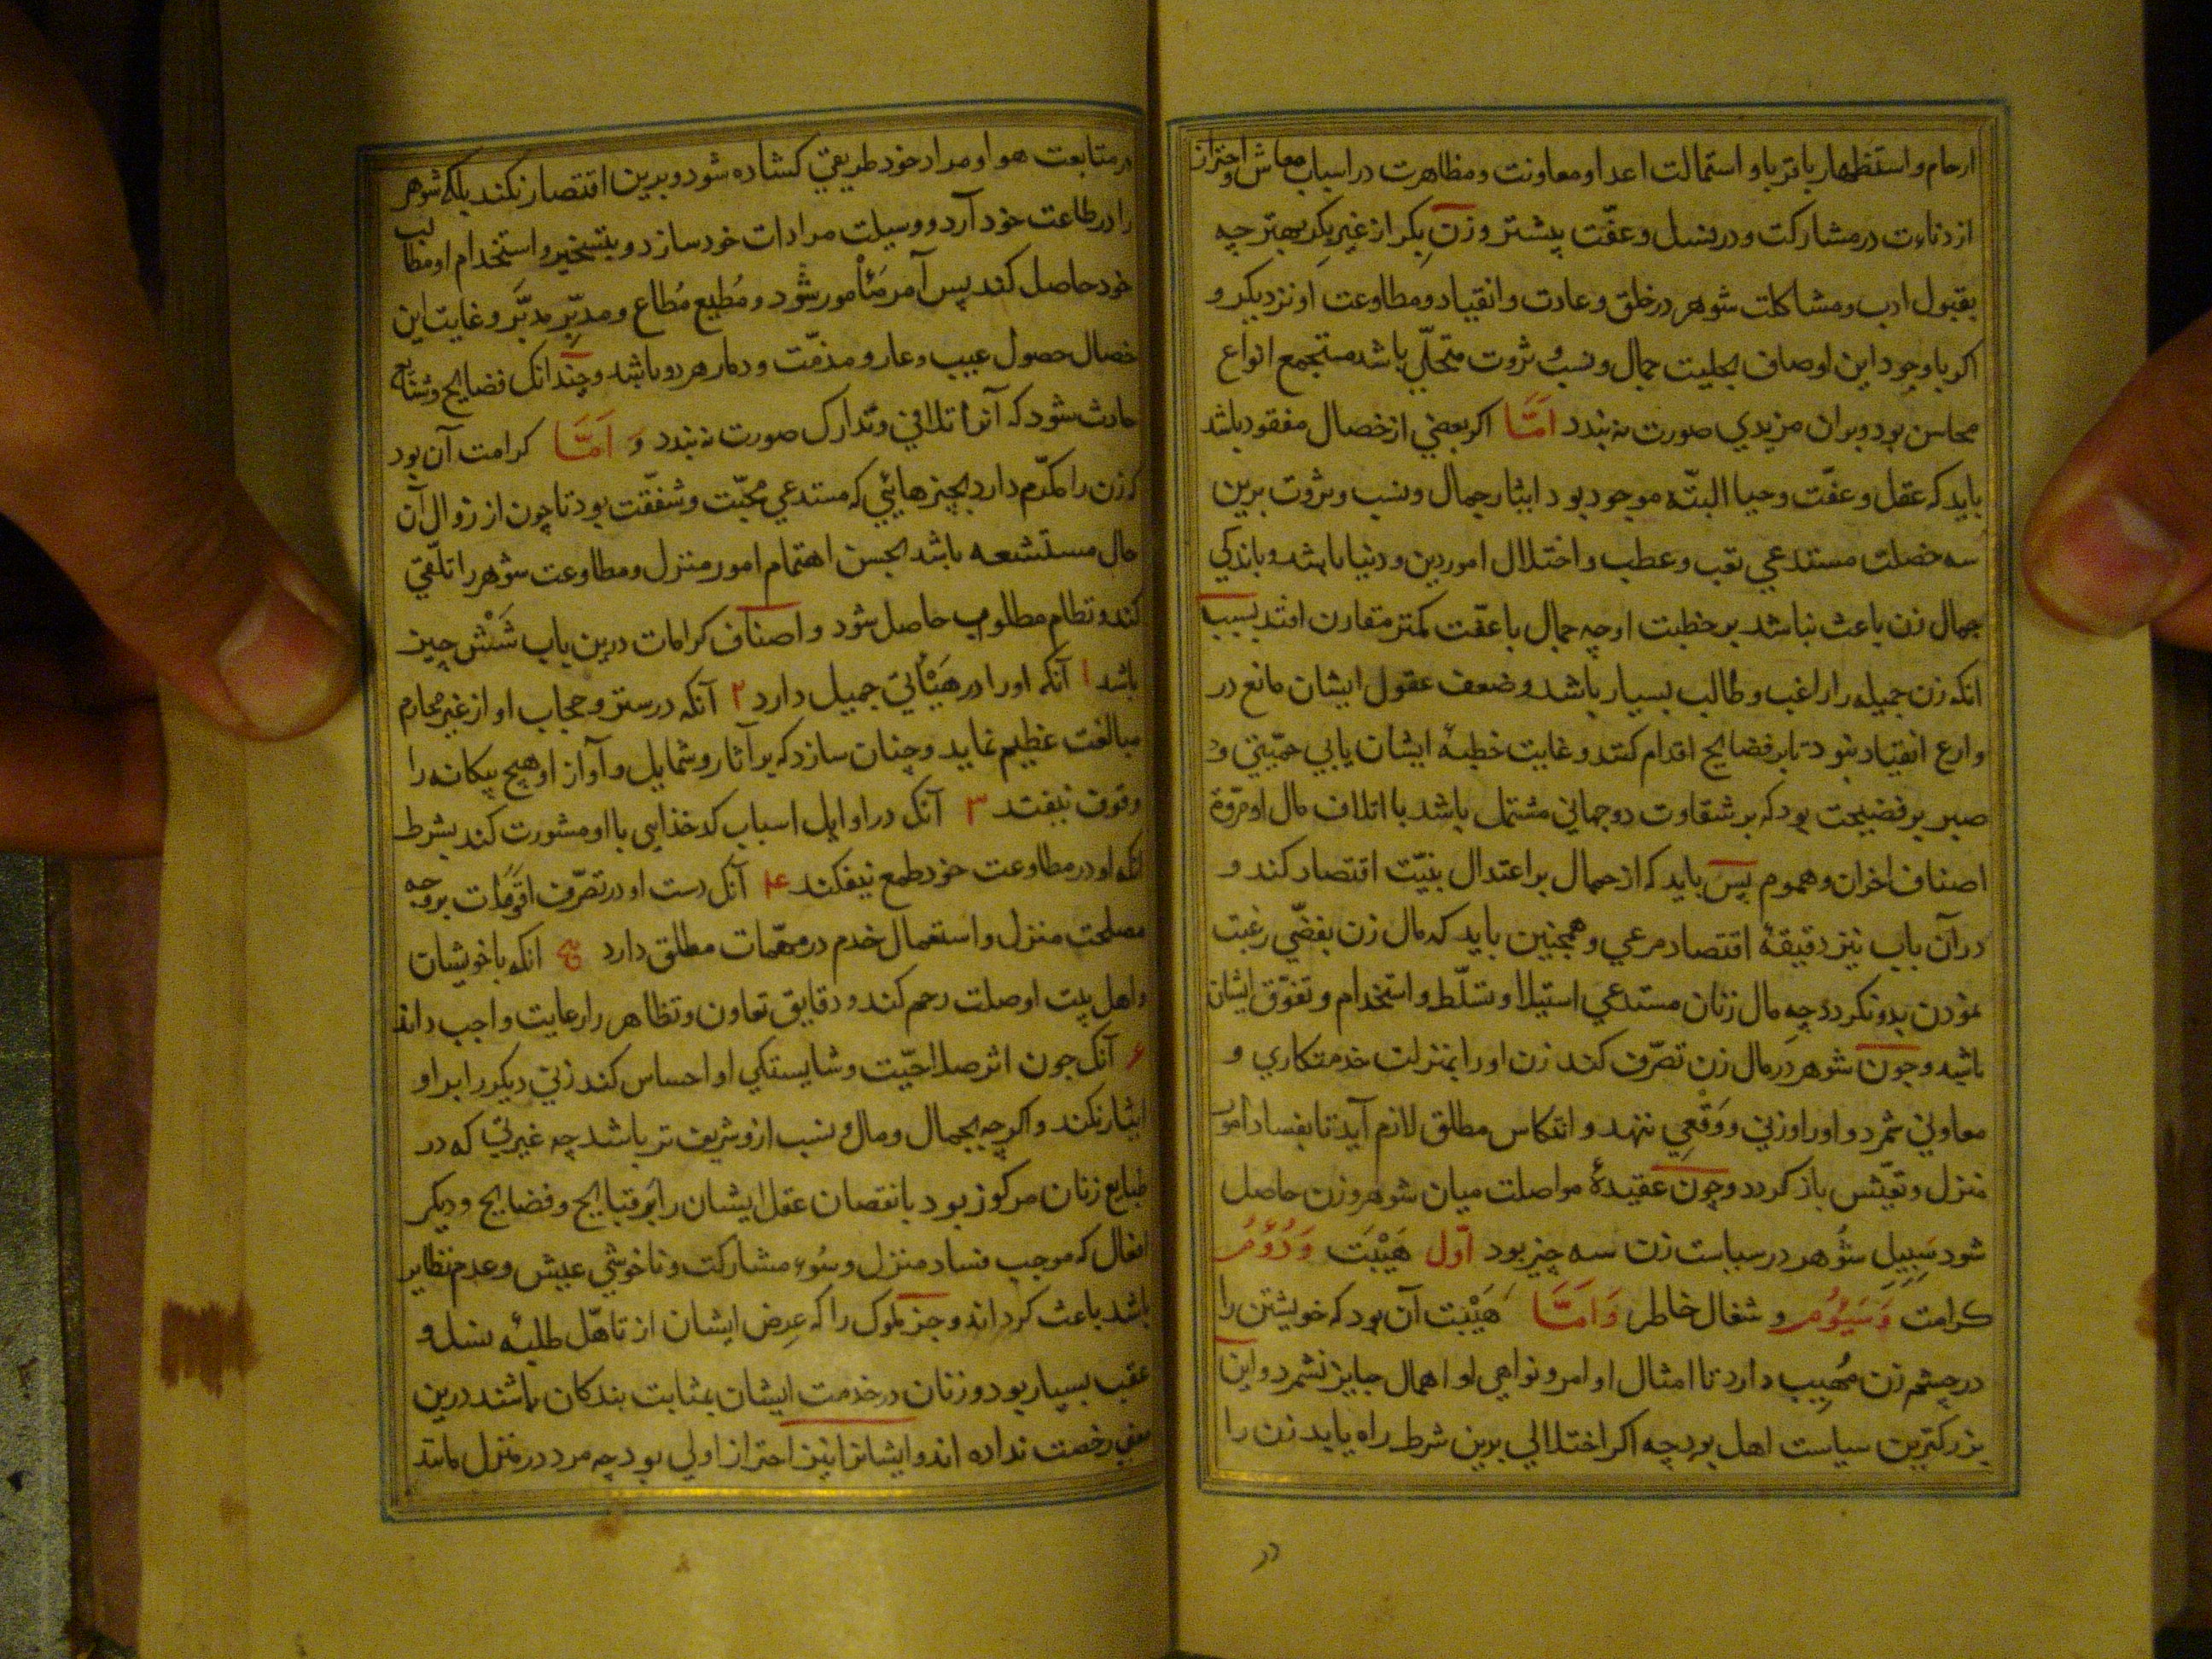 ارحام و استظهار باقربا و استمالت اعدا و معاونت و مظاهرت در اسباب معاش و احتراز
از دناءت در مشارکت و در نسل و عفّت پیشتر و زن بکر از غیر بکر بهتر چه
بقبول ادب و مشاکلت شوهر در خلق و عادت و انقیاد و مطاوعت او نزدیکتر و
اکر با وجود این اوصاف بحلیت جمال و نسب و ثروت متحلّی باشد مستجمع انواع
محاسن بود و بران مزیدی صورت نه بندد امّا اکر بعضی از خصال مفقود باشد
باید که عقل و عفّت و حیا البتّه موجود بود ایثار جمال و نسب و ثروت برین
سه خصلت مستدعی تعب و عطب و اختلال امور دین و دنیا باشد و باندکی
جمال زن باعث نباشد بر خطبت او چه جمال با عفّت کمتر مقارن افتد بسبب
انکه زن جمیله را راغب و طالب بسیار باشد و ضعف عقول ایشان مانع در
وازع انقیاد نبود تا بر فضایح اقدام کنند و غایت خطبهٔ ایشان یا بی حمیّتی و
صبر بر فضیحت بود که بر شقاوت دو جهانی مشتمل باشد یا اتلاف مال و مروّة
اصناف احزان و هموم پس باید که از جمال بر اعتدال بنیّت اقتصار کند و
در آن باب نیز دقیقهٔ اقتصاد مرعی و همچنین باید که مال زن بغضّی رغبت
نمودن بدو نکردد چه مال زنان مستدعی استیلا و تسلّط و استخدام و تفوّق ایشان
باشد و چون شوهر در مال زن تصرّف کند زن او را بمنزلت خدمتکاری و
معاونی شمرد و او را وزنی و وقعی ننهد و انتکاس مطلق لازم آید تا بفساد امور
منزل و تعیّش باز کردد و چون عقیدهٔ مواصلت میان شوهر و زن حاصل
شود سَبِیل شوهر در سیاست زن سه چیز بود اوّل هَیْبَت وَ دُوُمْ
کرامت وَ سَیُوُمْ و شغال خاطر وَ امَّا هَیْبَت آن بود که خویشتن را
در چشم زن مُهِیب دارد تا امثال اوامر و نواهی او اهمال جایز نشمرد و این
بزرکترین سیاست اهل بود چه اکر اختلالی برین شرط راه یابد زن را
در
در متابعت هوا و مراد خود طریقی کشاده شود و برین اقتصار نکند بلکه شوهر
را در طاعت خود آرد و وسیلت مرادات خود سازد و بتسخیر و استخدام او مطالب
خود حاصل کند پس آمر مَأْمور شود و مُطیع مُطاع و مدبِّر مدبَّر و غایت این
خصال حصول عیب و عار و مذمّت و دمار هر دو باشد و چندانک فضایح و شنایع
حادث شود که آنرا تلافی و تدارک صورت نه بندد وَ امَّا کرامت آن بود
که زن را مکرّم دارد بچیزهائی که مستدعی محبّت و شفقّت بود تا چون از زوال آن
حال مستشعر باشد بحسن اهتمام امور منزل و مطاوعت شوهر را تلقّی
کند و نظام مطلوب حاصل شود و اصناف کرامات درین باب شَشْ چیز
باشد ۱ آنکه او را در هَیْأتی جمیل دارد ۲ آنکه در ستر و حجاب او از غیر محارم
مبالغت عظیم نماید و چنان سازد که بر آثار و شمایل و آواز او هیچ بیکانه را
وقوف نیفتد ۳ آنک در اوایل اسباب کدخذایی با او مشورت کند بشرط
انکه او در مطاوعت خود طمع نیفکند ۴ آنک دست او در تصرّف اقوات بر وجه
مصلحت منزل و استعمال خدم در مهمّات مطلق دارد ۵ انکه با خویشان
و اهل بیت او صلت رحم کند و دقایق تعاون و تظاهر را رعایت واجب داند
۶ آنک چون اثر صلاحیّت و شایستکی او احساس کند زنی دیکر را بر او
ایثار نکند و اکرچه بجمال و مال و نسب ازو شریف تر باشد چه غیرتی که در
طبایع زنان مرکوز بود با نقصان عقل ایشان را بر قبایح و فضایح و دیکر
افعال که موجب فساد منزل و سُوء مشارکت و ناخوشی عیش و عدم نظایر
باشد باعث کرداند و جز ملوک را که عِرض ایشان از تاهّل طلبهٔ نسل و
عقب بسیار بود و زنان در خدمت ایشان بمثابت بندکان باشند درین
معنی رخصت نداده اند و ایشانرا نیز احتراز اولی بود چه مرد در منزل مانند